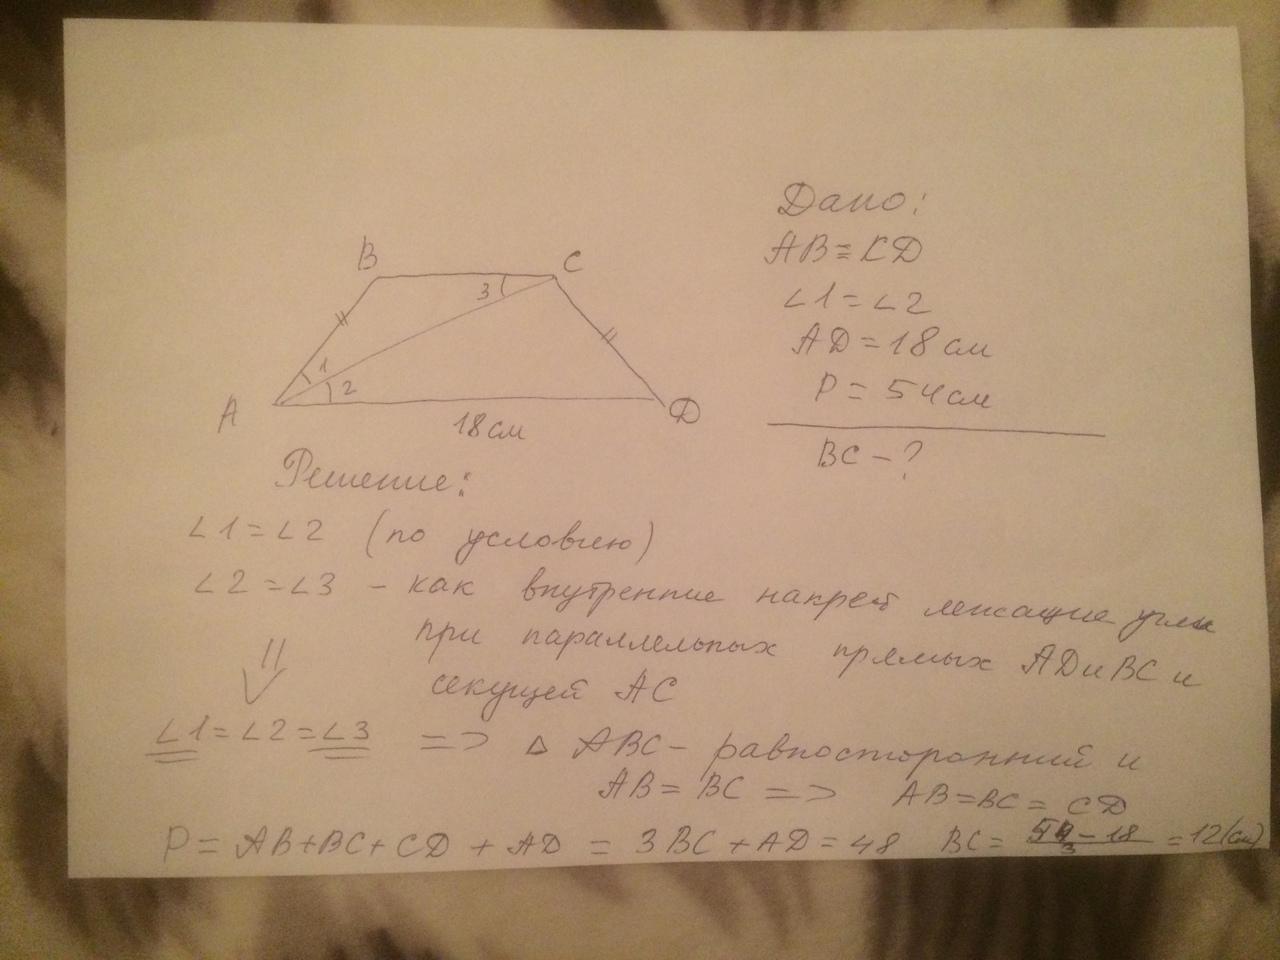 B
C
3
1
2
A
D
18 см
Дано:
AB = CD
∠1 = ∠2
AD = 18 см
P = 54 см
BC - ?
Решение:
∠1 = ∠2 (по условию)
∠2 = ∠3 - как внутренние накрест лежащие углы
при параллельных прямых AD и BC и
секущей AC
∠1 = ∠2 = ∠3 => △ ABC - равносторонний и
AB = BC => AB = BC = CD
P = AB + BC + CD + AD = 3BC + AD = 48 BC = 54 - 18 / 3 = 12 (см)